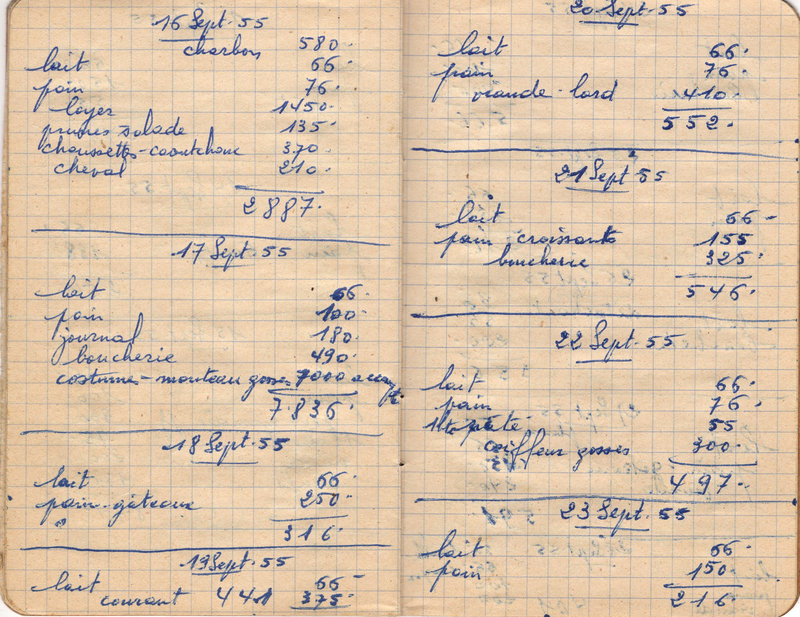 16 Sept. 55
charbon 580.
lait 66.
pain 76.
loyer 1450.
prunes salade 135.
chaussettes - caoutchouc 370.
cheval 210.
2887.
17 Sept. 55
lait 66.
pain 100.
journal 180.
boucherie 490.
costumes - manteau gosses 7000 acompte
7.836.
18 Sept. 55
lait 66.
pain - gâteaux 250.
316.
19 Sept. 55
lait 66
courant 441 375.
20 Sept. 55
lait 66.
pain 76.
viande - lard 410.
552.
21 Sept 55
lait 66
pain croissants 155
boucherie 325.
546.
22 Sept. 55
lait 66.
pain 76.
pâté 55
coiffeur gosses 300.
497.
23 Sept. 55
lait 66.
pain 150.
216.